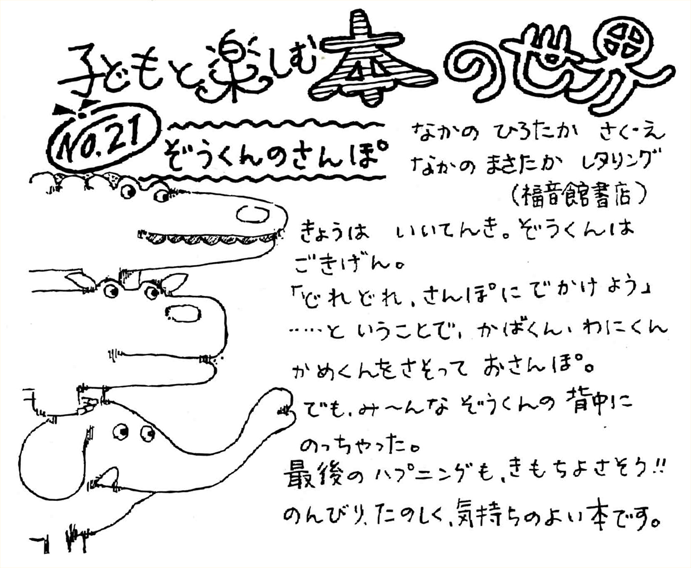 子どもと楽しむ本の世界
No.21
ぞうくんのさんぽ
なかの ひろたか さく・え
なかの まさたか レタリング
(福音館書店)
きょうは いいてんき。ぞうくんは
ごきげん。
「どれどれ、さんぽにでかけよう」
……と いうことで、かばくん、わにくん
かめくんをさそって おさんぽ。
でも、み〜んな ぞうくんの 背中に
のっちゃった。
最後の ハプニングも、きもちよさそう!!
のんびり、たのしく、気持ちのよい本です。